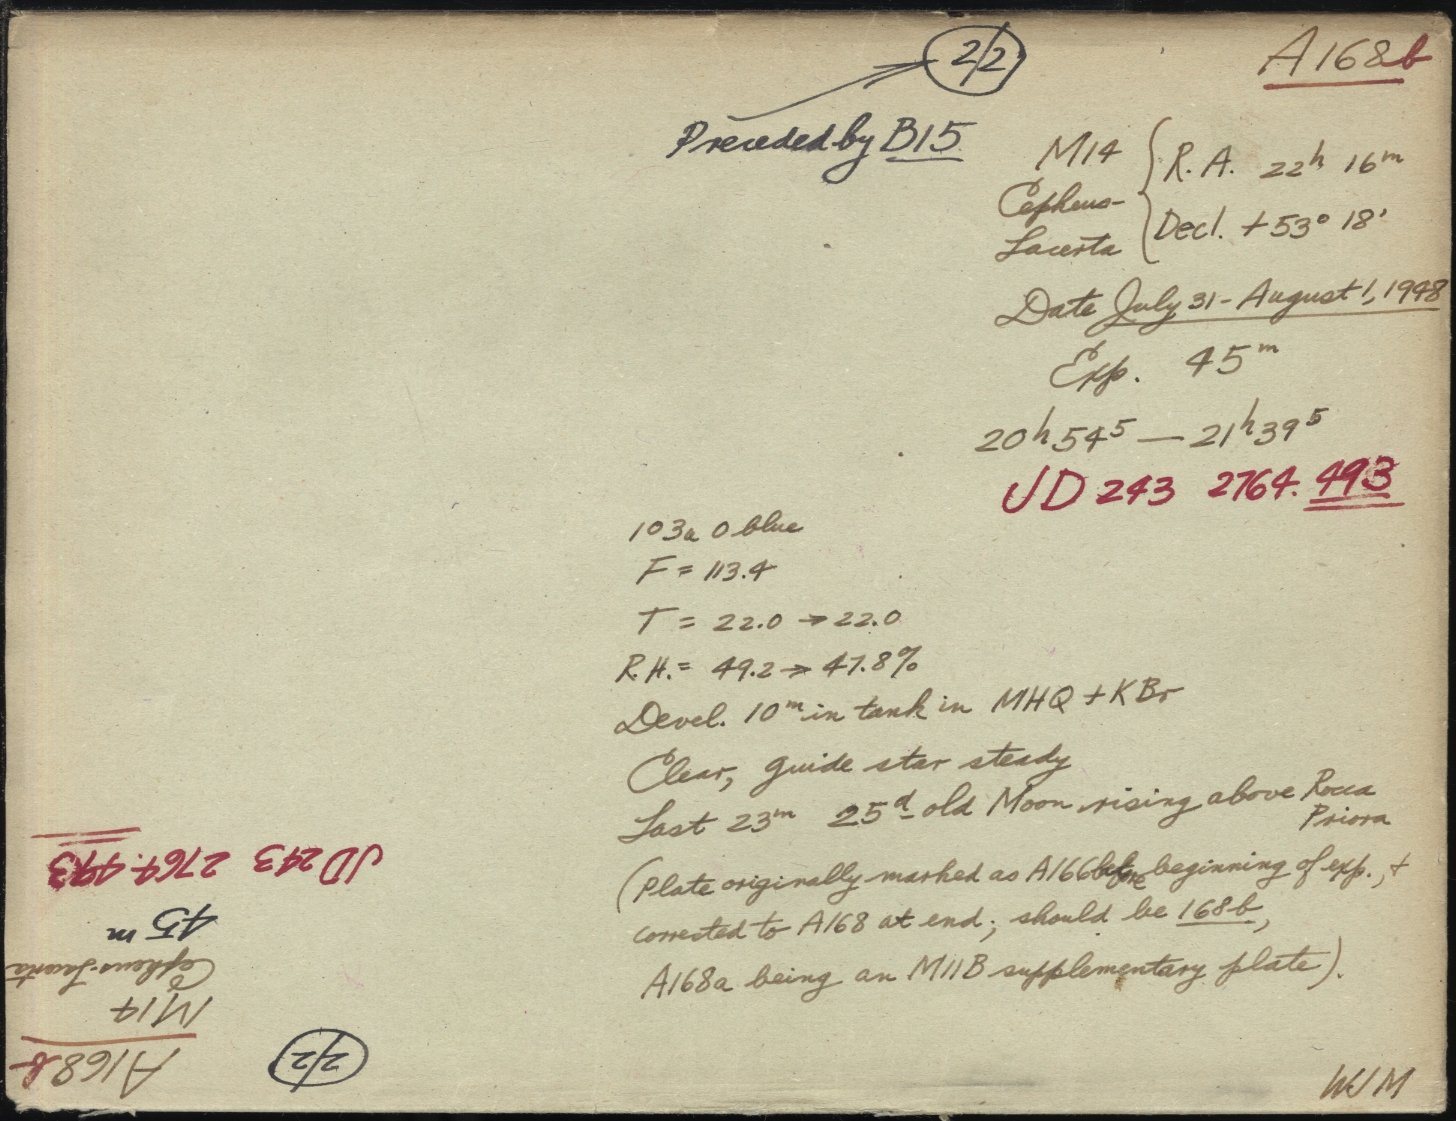 2/2
A168b
Preceded by B15
M14
Cepheus-
Lacerta
R.A. 22h 16m
Decl. +53° 18'
Date July 31 - August 1, 1948
Exp. 45m
20h 54 5 — 21h 39 5
JD 243 2764.493
103a O blue
F = 113.4
T = 22.0 → 22.0
R.H. = 49.2 → 47.8%
Devel. 10m in tank in MHQ + KBr
Clear, guide star steady
Last 23m 25d old Moon rising above Rocca
Priora
(Plate originally marked as A166 before beginning of exp., +
corrected to A168 at end; should be 168b,
A168a being an M11B supplementary plate).
WJM
2/2
A168b
M14
Cepheus-Lacerta
45 m
JD 243 2764.493